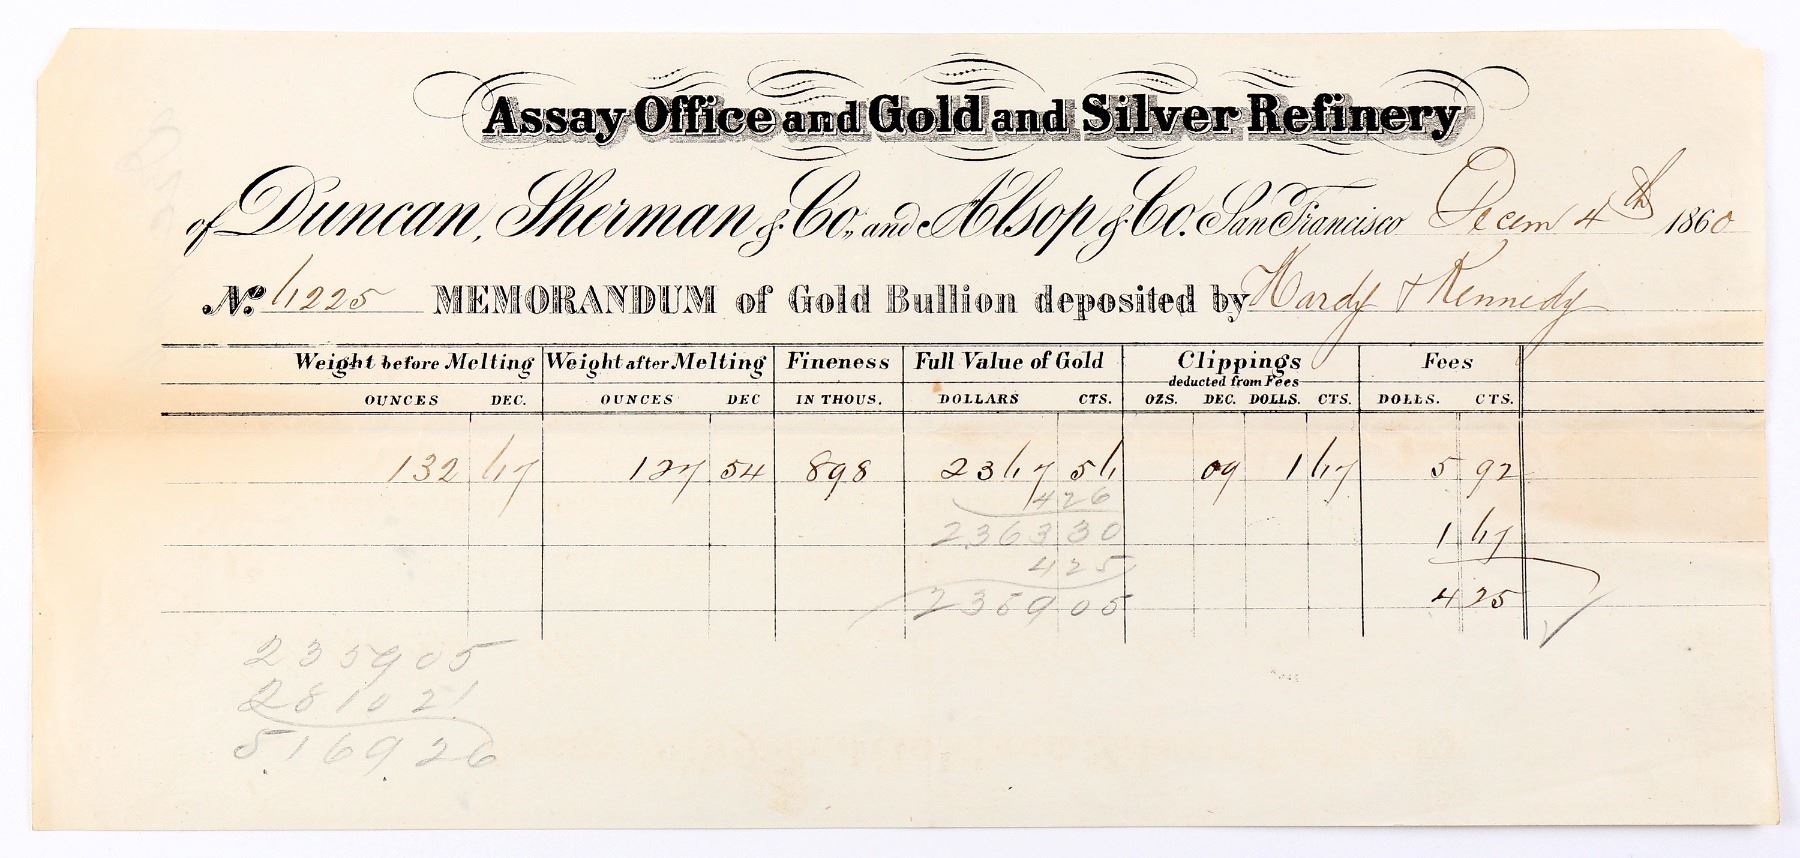 Assay Office and Gold and Silver Refinery
of Duncan, Sherman & Co., and Alsop & Co. San Francisco Decem 4th 1860
No. 6225 MEMORANDUM of Gold Bullion deposited by Hardy & Kennedy
Weight before Melting Weight after Melting Fineness Full Value of Gold Clippings Fees
deducted from Fees
OUNCES DEC. OUNCES DEC IN THOUS. DOLLARS CTS. OZS. DEC. DOLLS. CTS. DOLLS. CTS.
132 67 127 54 898 2367 56 09 1 67 5 92
426
236330 1 67
425
235905 4 25
235905
281021
516926